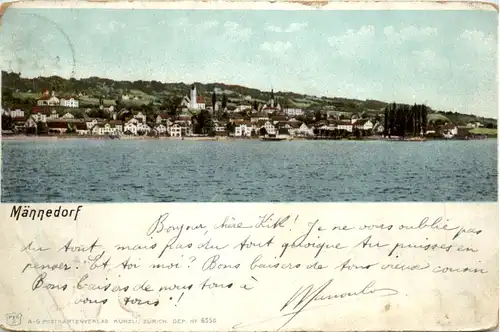 Männedorf
Bonjour chère Kitt! Je ne vous oublie pas
du tout, mais pas du tout quoique tu puisses en
penser. Et toi moi? Bons baisers de ton vieux cousin
Bons baisers de nous tous à
vous tous!
A-G. POSTKARTENVERLAG KÜNZLI, ZÜRICH. DEP. № 6550